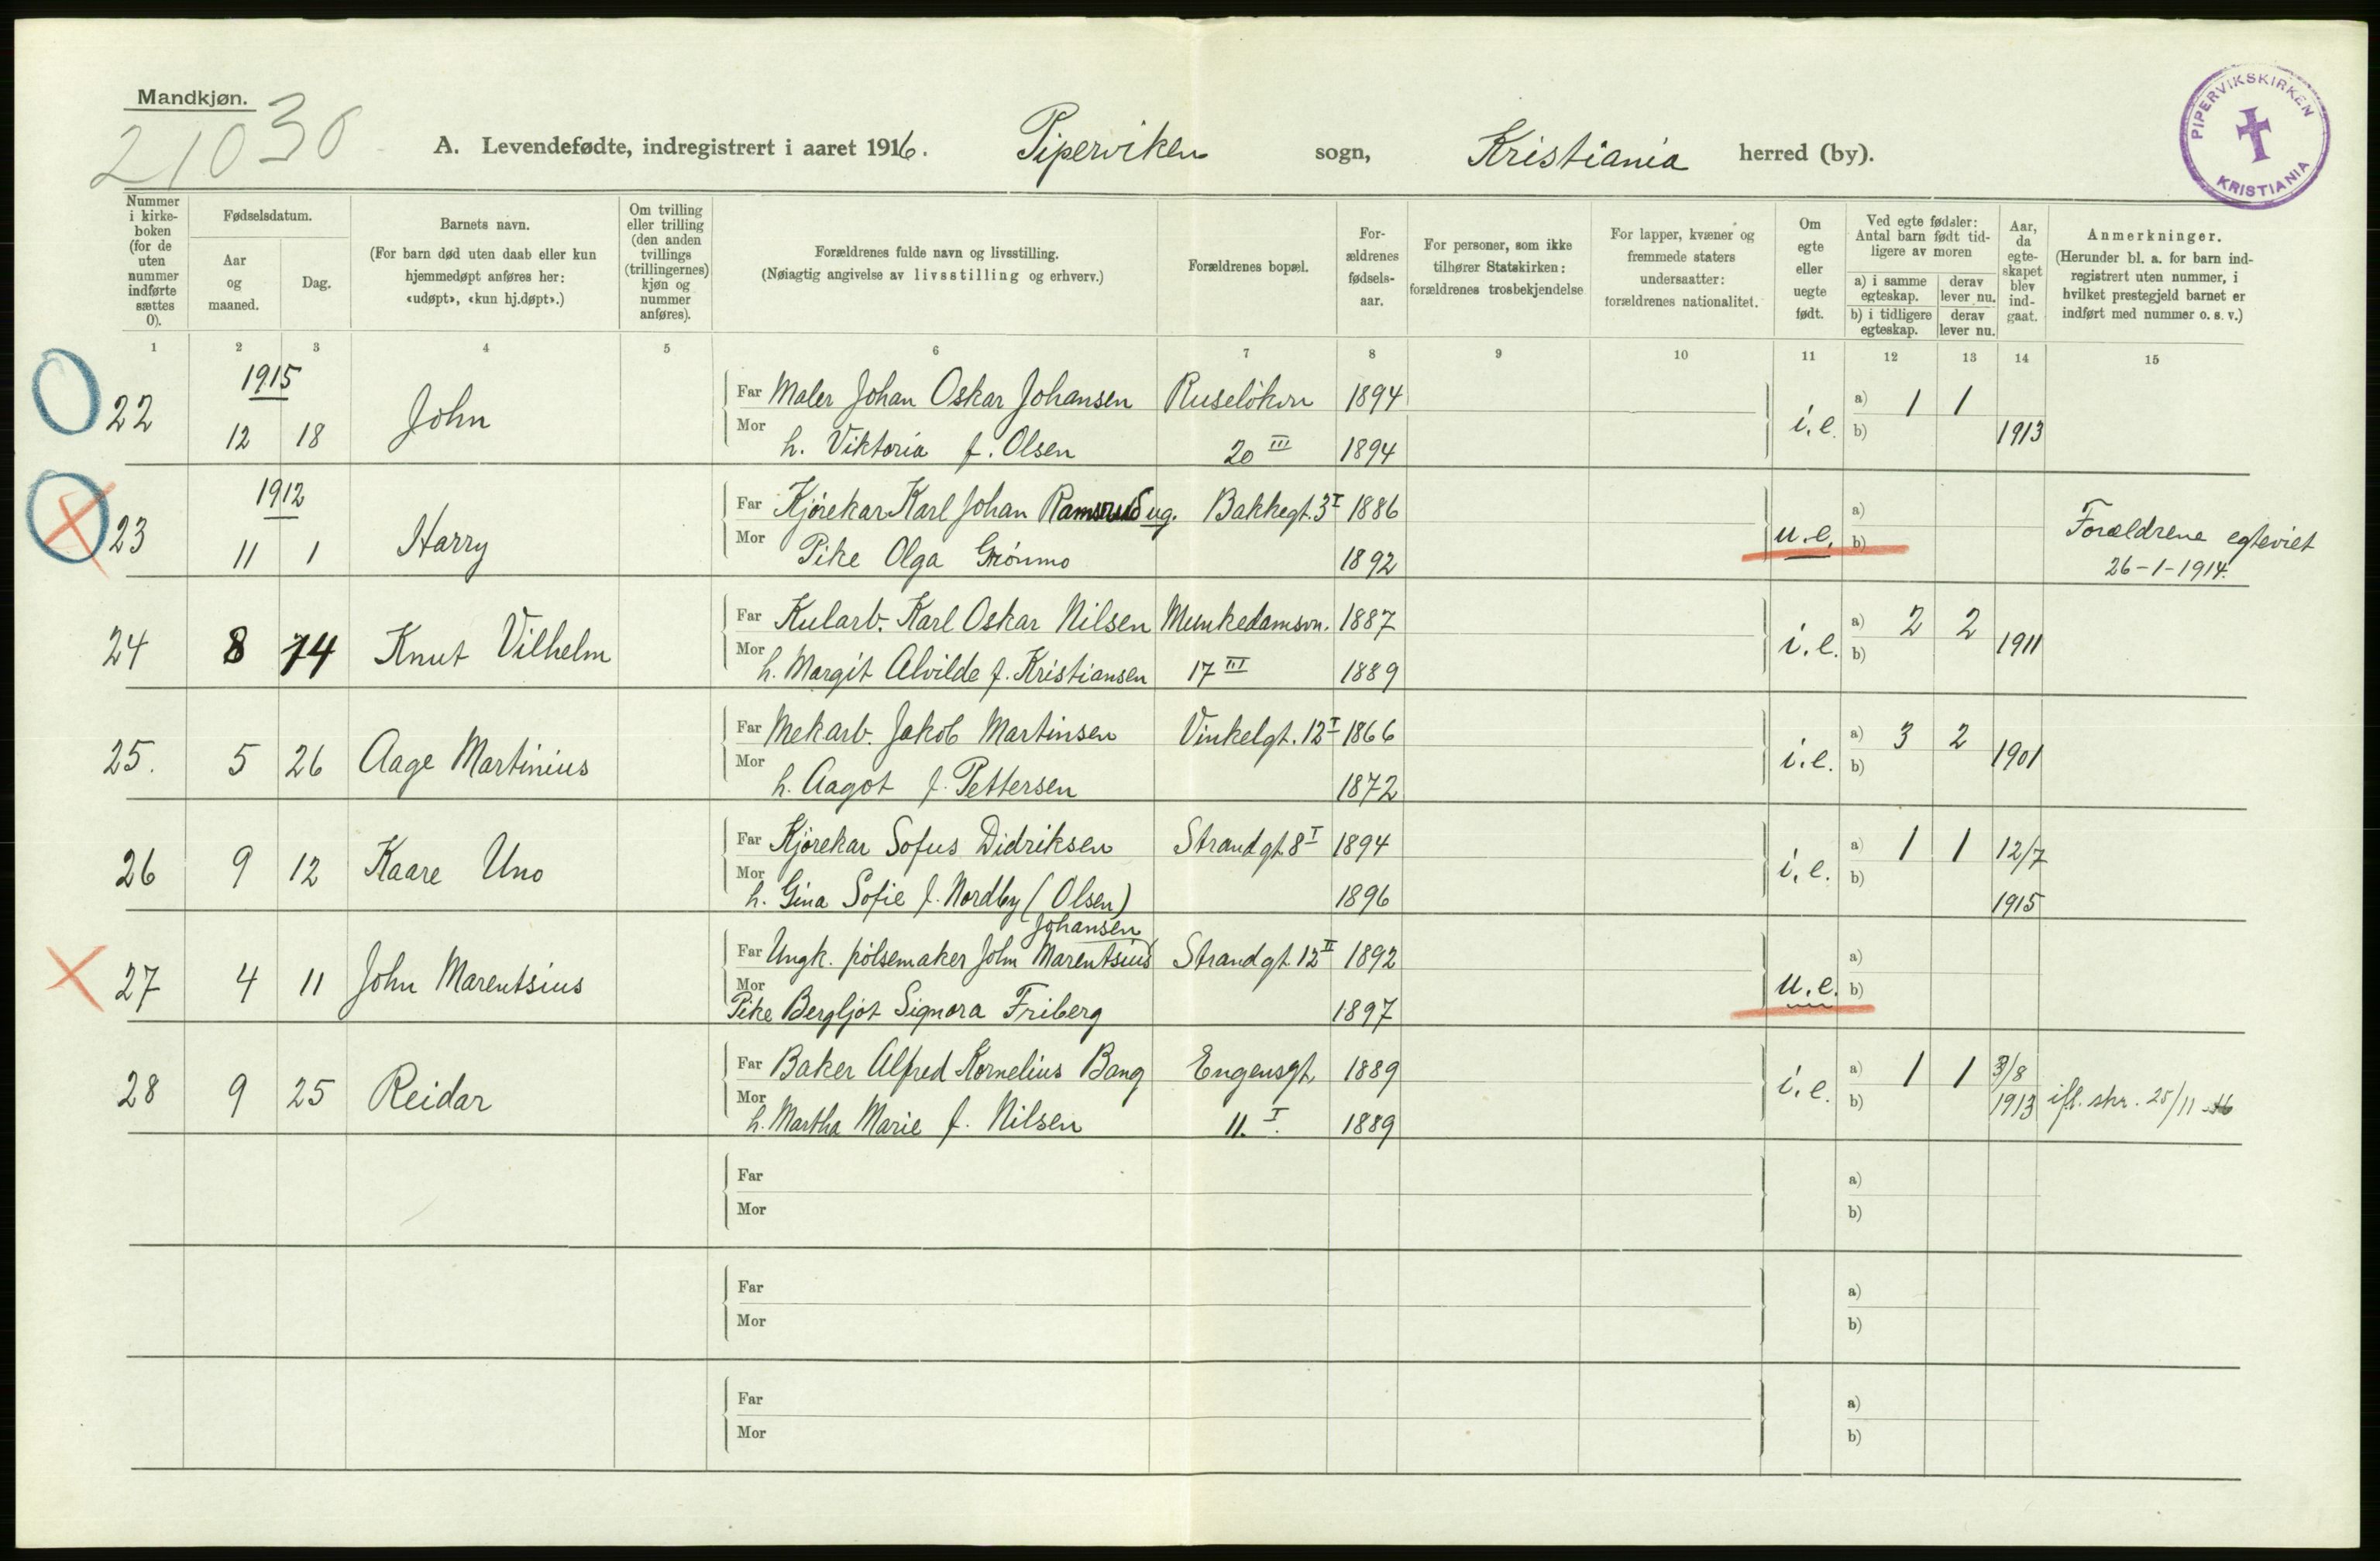 Mandkjøn.
21030
A. Levendefødte, indregistrert i aaret 1916. Piperviken sogn, Kristiania herred (by).
PIPERVIKSKIRKEN
KRISTIANIA
Nummer i kirkeboken (for de uten nummer indførte sættes 0).
Fødselsdatum.
Aar og maaned.
Dag.
Barnets navn.
(For barn død uten daab eller kun hjemmedøpt anføres her: «udøpt», «kun hj.døpt».)
Om tvilling eller trilling (den anden tvillings (trillingernes) kjøn og nummer anføres).
Forældrenes fulde navn og livsstilling.
(Nøiagtig angivelse av livsstilling og erhverv.)
Forældrenes bopæl.
For-ældrenes fødsels-aar.
For personer, som ikke tilhører Statskirken: forældrenes trosbekjendelse
For lapper, kvæner og fremmede staters undersaatter: forældrenes nationalitet.
Om egte eller uegte født.
Ved egte fødsler: Antal barn født tid-ligere av moren
a) i samme egteskap. derav lever nu.
b) i tidligere egteskap. derav lever nu.
Aar, da egte-skapet blev ind-gaat.
Anmerkninger.
(Herunder bl. a. for barn ind-registrert uten nummer, i hvilket prestegjeld barnet er indført med nummer o. s. v.)
1 2 3 4 5 6 7 8 9 10 11 12 13 14 15
1915
22 12 18 John
Far Maler Johan Oskar Johansen Ruseløkvn 1894 a) 1 1
Mor h. Viktoria f. Olsen 20 III 1894 i.e. b) 1913
1912
23 11 1 Harry
Far Kjørekar Karl Johan Ramsrud ug. Bakkegt. 3 I 1886 a)
Mor Pike Olga Grønmo 1892 u.e. b) Forældrene egteviet
26-1-1914.
24 8 14 Knut Vilhelm
Far Kularb. Karl Oskar Nilsen Munkedamsvn. 1887 a) 2 2
Mor h. Margit Alvilde f. Kristiansen 17 III 1889 i.e. b) 1911
25. 5 26 Aage Martinius
Far Mekarb. Jakob Martinsen Vinkelgt. 12 I 1866 a) 3 2
Mor h. Aagot f. Pettersen 1872 i.e. b) 1901
26 9 12 Kaare Uno
Far Kjørekar Sofus Didriksen Strandgt. 8 I 1894 a) 1 1 12/7
Mor h. Gina Sofie f. Nordby (Olsen) 1896 i.e. b) 1915
Johansen
27 4 11 John Marentsius
Far Ungk. pølsemaker John Marentsius Strandgt. 12 II 1892 a)
Mor Pike Bergljot Signora Friberg 1897 u.e. b)
28 9 25 Reidar
Far Baker Alfred Kornelius Bang Engensgt. 1889 a) 1 1 3/8
Mor h. Martha Marie f. Nilsen 11. I. 1889 i.e. b) 1913 ifl. skr. 25/11 -16
Far a)
Mor b)
Far a)
Mor b)
Far a)
Mor b)